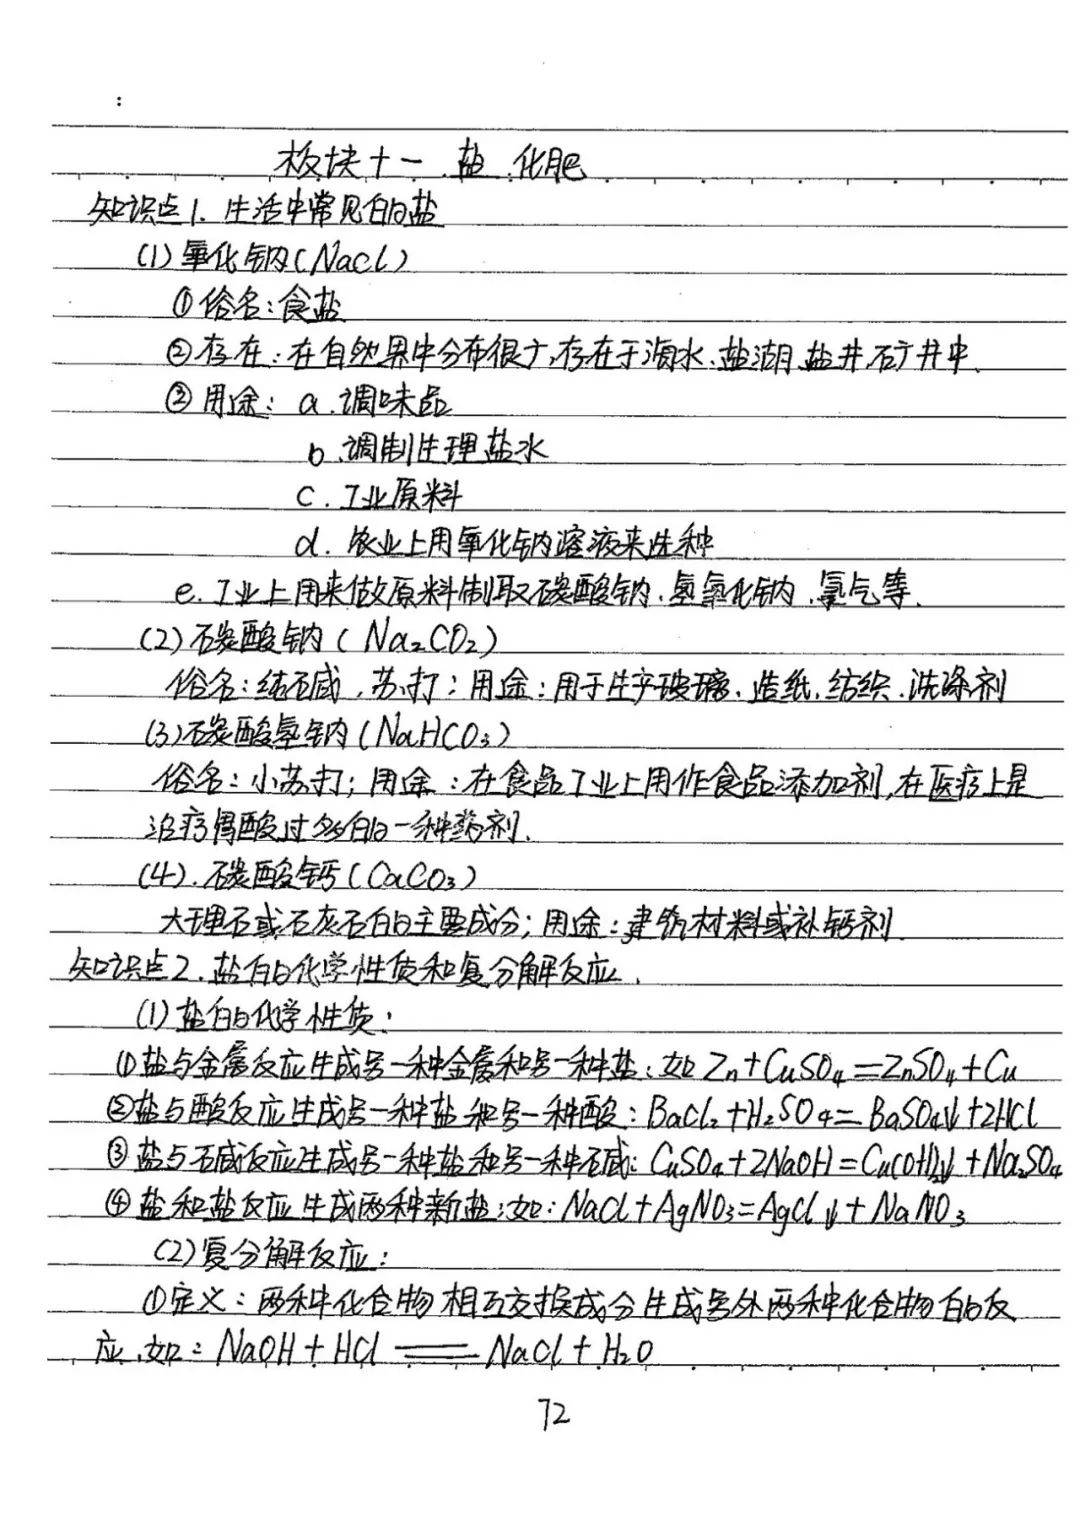 :
板块十一 盐 化肥
知识点1. 生活中常见的盐
(1) 氯化钠(NaCl)
①俗名:食盐
②存在:在自然界中分布很广,存在于海水、盐湖、盐井、矿井中.
③用途: a.调味品
b.调制生理盐水
c.工业原料
d.农业上用氯化钠溶液来选种
e.工业上用来做原料制取碳酸钠、氢氧化钠、氯气等.
(2) 碳酸钠(Na₂CO₂)
俗名:纯碱,苏打;用途:用于生产玻璃、造纸、纺织、洗涤剂
(3)碳酸氢钠(NaHCO₃)
俗名:小苏打;用途:在食品工业上用作食品添加剂,在医疗上是
治疗胃酸过多的一种药剂.
(4).碳酸钙(CaCO₃)
大理石或石灰石的主要成分;用途:建筑材料或补钙剂
知识点2.盐的化学性质和复分解反应.
(1)盐的化学性质:
①盐与金属反应生成另一种金属和另一种盐:如Zn+CuSO₄=ZnSO₄+Cu
②盐与酸反应生成另一种盐和另一种酸:BaCl₂+H₂SO₄=BaSO₄↓+2HCl
③盐与碱反应生成另一种盐和另一种碱:CuSO₄+2NaOH=Cu(OH)₂↓+Na₂SO₄
④盐和盐反应生成两种新盐;如:NaCl+AgNO₃=AgCl↓+NaNO₃
(2)复分解反应:
①定义:两种化合物相互交换成分生成另外两种化合物的反
应.如:NaOH+HCl══NaCl+H₂O
72